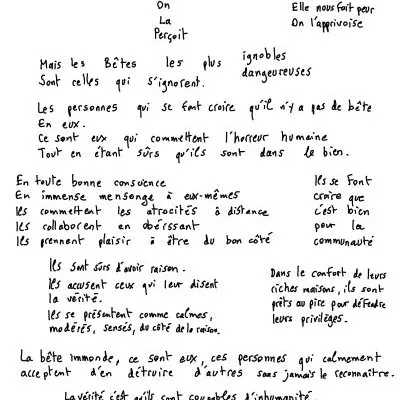 On
La
Perçoit
Elle nous fait peur
On l'apprivoise
Mais les Bêtes les plus ignobles
dangeureuses
Sont celles qui s'ignorent.
Les personnes qui se font croire qu'il n'y a pas de bête
En eux.
Ce sont eux qui commettent l'horreur humaine
Tout en étant sûrs qu'ils sont dans le bien.
En toute bonne conscience
En immense mensonge à eux-mêmes
Ils commettent les atrocités à distance
Ils collaborent en obéissant
Ils prennent plaisir à être du bon côté
Ils se Font
croire que
c'est bien
pour la
communauté
Ils sont sûrs d'avoir raison.
Ils accusent ceux qui leur disent
la vérité.
Ils se présentent comme calmes,
modérés, sensés, du côté de la raison.
Dans le confort de leurs
riches maisons, ils sont
prêts au pire pour défendre
leurs privilèges.
La bête immonde, ce sont eux, ces personnes qui calmement
acceptent d'en détruire d'autres sans jamais le reconnaître.
La vérité c'est qu'ils sont coupables d'inhumanité.